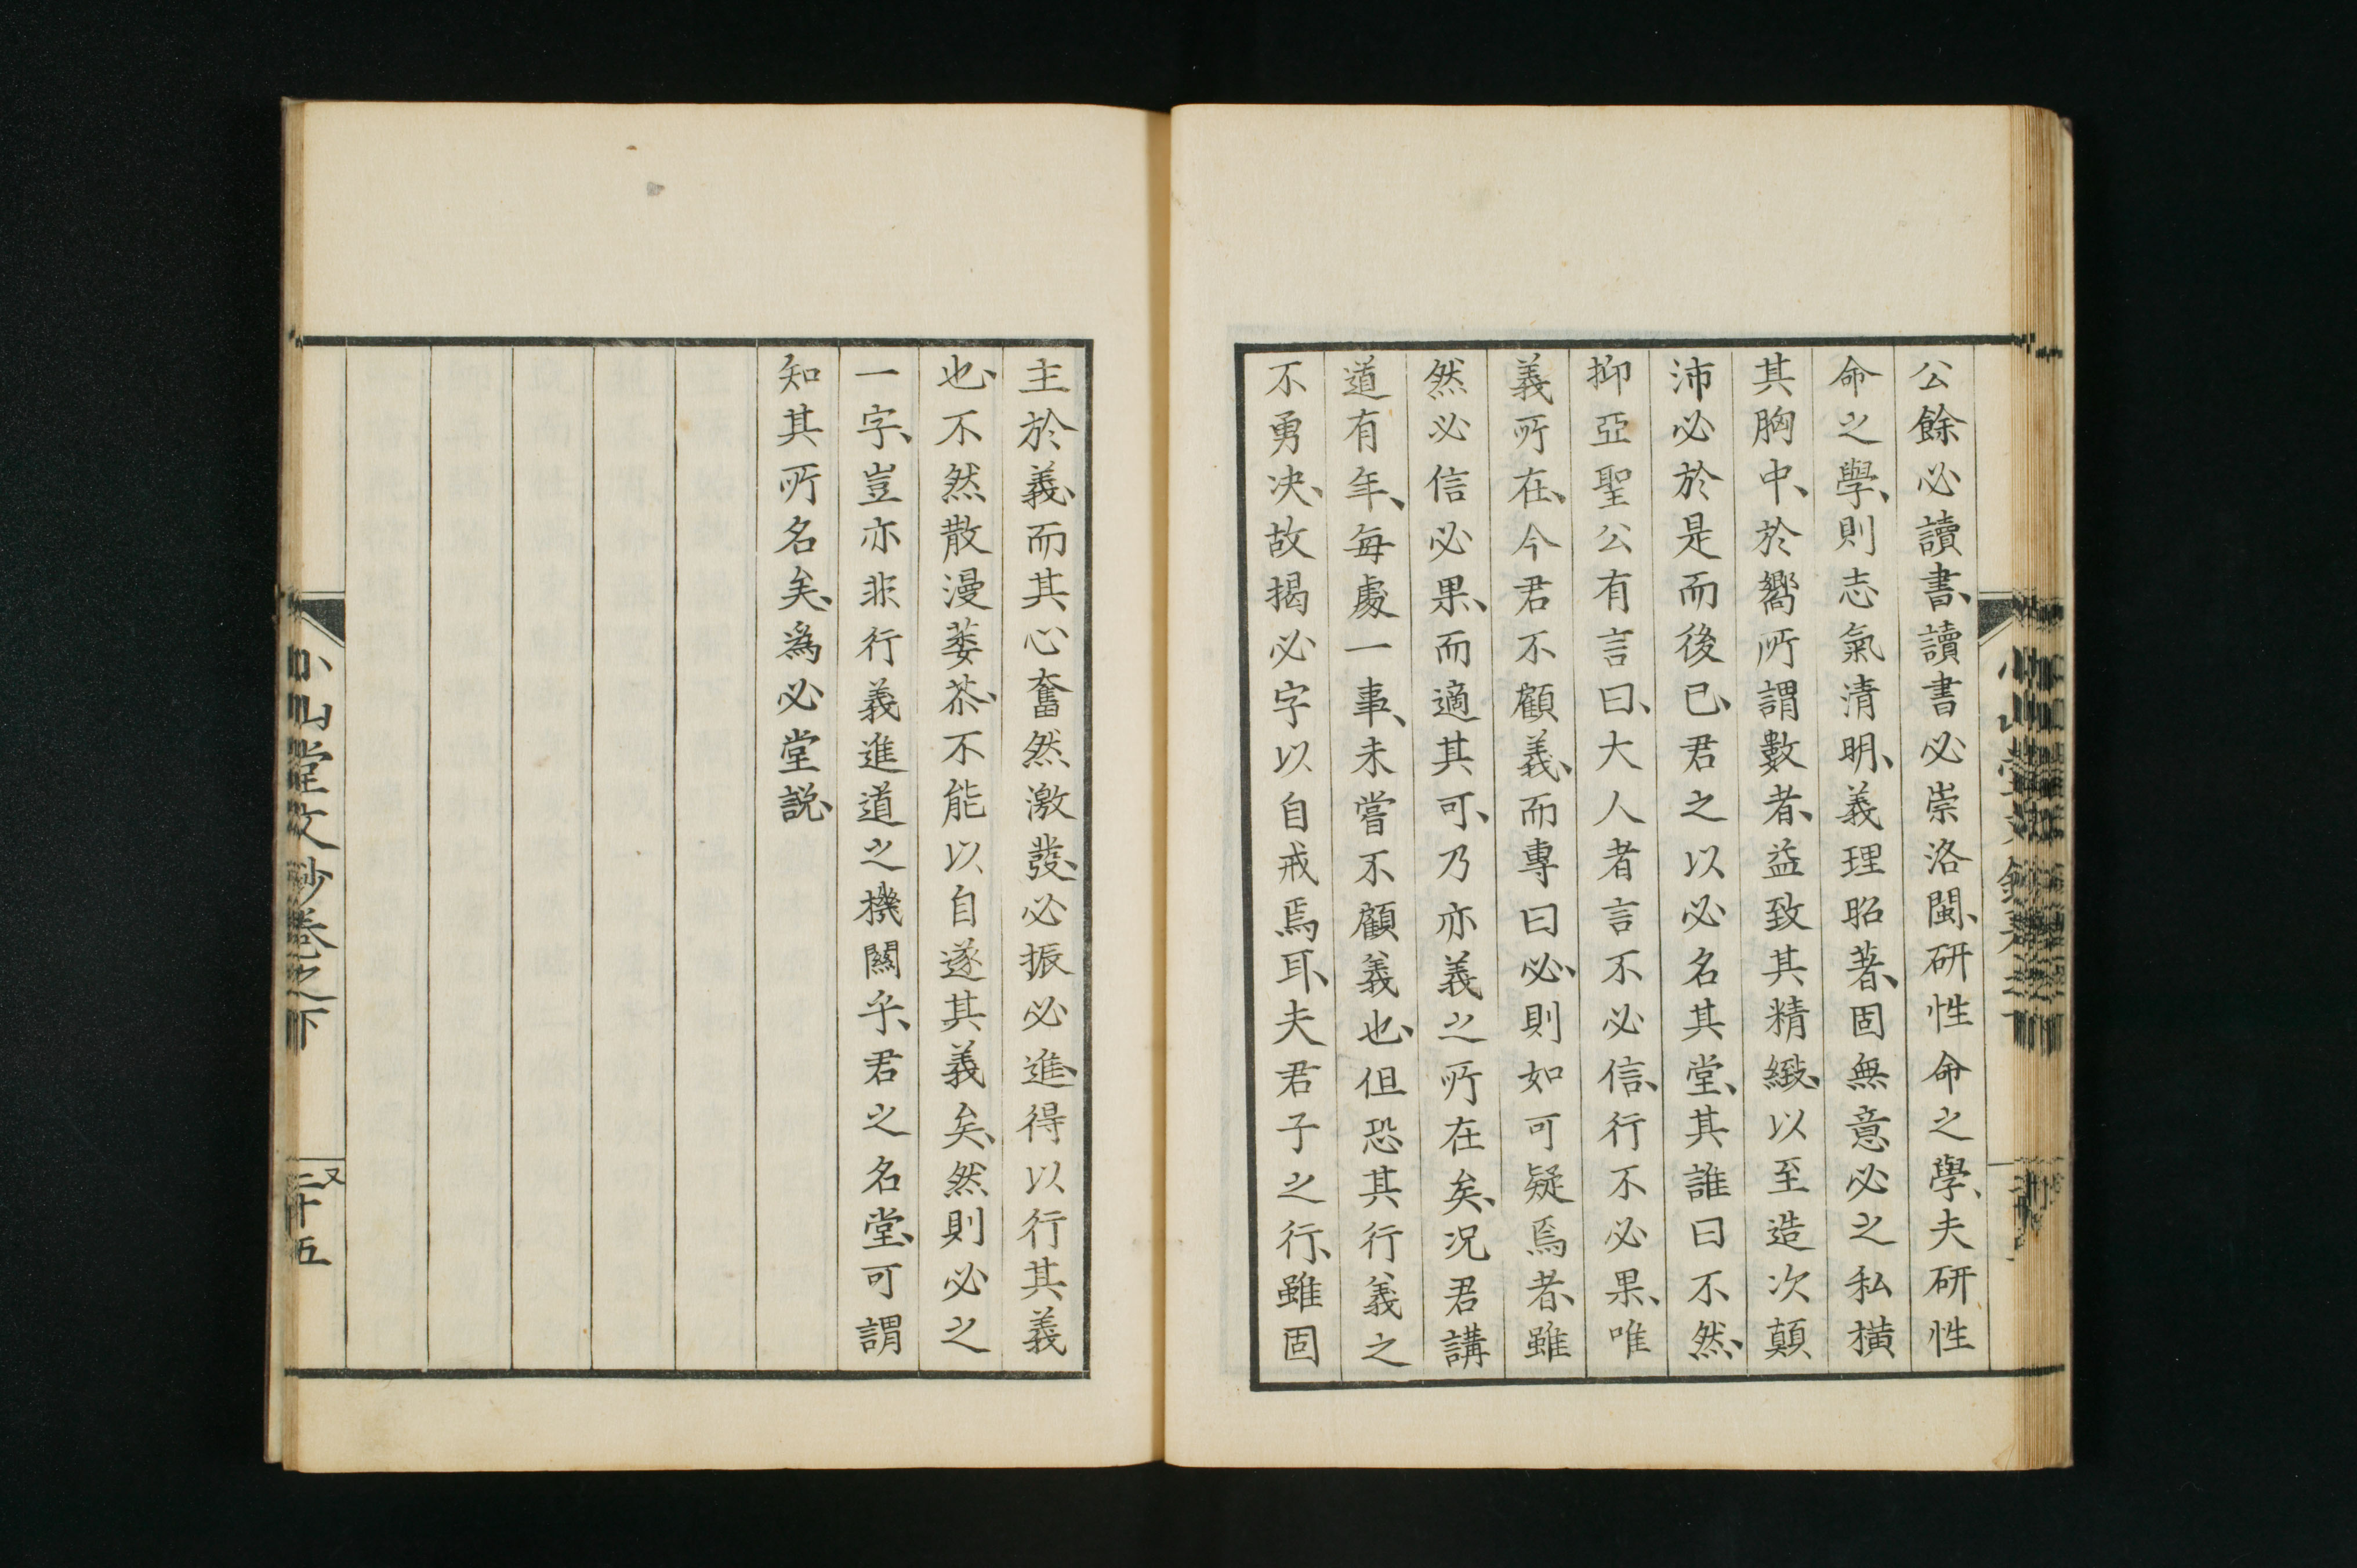 公餘必讀書、讀書必崇洛閩、研性命之學、夫研性
命之學、則志氣清明、義理昭著、固無意必之私橫
其胸中、於嚮所謂數者、益致其精緻、以至造次顛
沛必於是而後已、君之以必名其堂、其誰曰不然、
抑亞聖公有言曰、大人者言不必信、行不必果、唯
義所在、今君不顧義、而專曰必、則如可疑焉者、雖
然必信必果、而適其可、乃亦義之所在矣、况君講
道有年、每處一事、未嘗不顧義也、但恐其行義之
不勇决、故揭必字以自戒焉耳、夫君子之行、雖固
主於義、而其心奮然激發、必振必進、得以行其義
也、不然散漫萎苶、不能以自遂其義矣、然則必之
一字、豈亦非行義進道之機關乎、君之名堂、可謂
知其所名矣、爲必堂說、
小山堂文鈔卷之下
又二十五